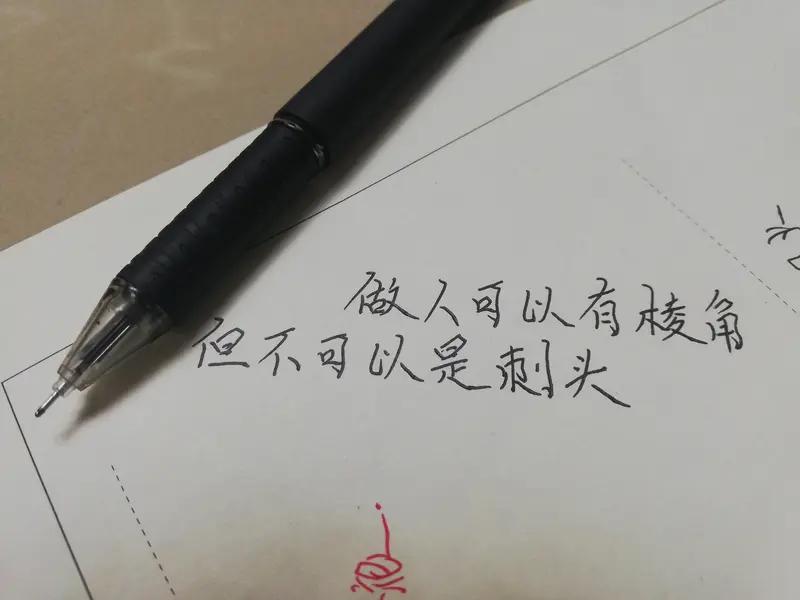 做人可以有棱角
但不可以是刺头